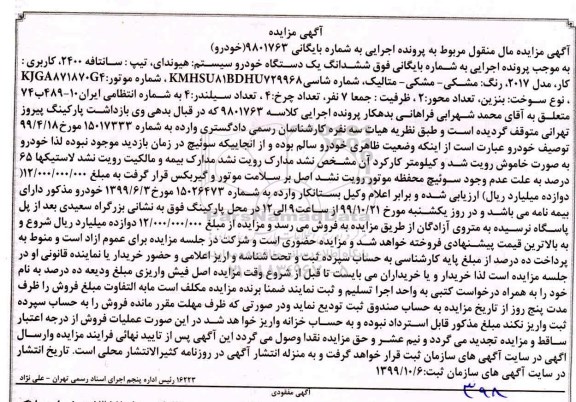 آگهی مزایده
آگهی مزایده مال منقول مربوط به پرونده اجرایی به شماره بایگانی ۹۸۰۱۷۶۳(خودرو)
به موجب پرونده اجرایی به شماره بایگانی فوق ششدانگ یک دستگاه خودرو سیستم: هیوندای، تیپ : سانتافه ۲۴۰۰، کاربری :
کار، مدل ۲۰۱۷، رنگ: مشکی- مشکی- متالیک، شماره شاسی KMHSU۸۱BDHU۷۲۹۹۶۸ ، شماره موتور:KJGA۸۷۱۸۷۰G۴
، نوع سوخت: بنزین، تعداد محور:۲ ، ظرفیت : جمعا ۷ نفر، تعداد چرخ:۴ ، تعداد سیلندر:۴ به شماره انتظامی ایران۱۰-۴۸۹ب۷۴
متعلق به آقای محمد شهرابی فراهانی بدهکار پرونده اجرایی کلاسه ۹۸۰۱۷۶۳ که در قبال بدهی وی بازداشت پارکینگ پیروز
تهرانی متوقف گردیده است و طبق نظریه هیات سه نفره کارشناسان رسمی دادگستری وارده به شماره ۱۵۰۱۷۳۳۳ مورخ ۹۹/۴/۱۸
توصیف خودرو عبارت است از اینکه وضعیت ظاهری خودرو سالم بوده و از آنجاییکه سوئیچ در زمان بازدید موجود نبوده لذا خودرو
به صورت خاموش رویت شد و کیلومتر کارکرد آن مشخص نشد مدارک رویت نشد مدارک بیمه و مالکیت رویت نشد لاستیکها ۶۵
درصد به علت عدم وجود سوئیچ محفظه موتور رویت نشد اصل بر سلامت موتور و گیربکس قرار گرفت به مبلغ ۱۲/۰۰۰/۰۰۰/۰۰۰(
دوازده میلیارد ریال) ارزیابی شده و برابر اعلام وکیل بستانکار وارده به شماره ۱۵۰۲۶۴۷۳ مورخ ۱۳۹۹/۶/۳ خودرو مذکور دارای
بیمه نامه می باشد و در روز یکشنبه مورخ ۱۳۹۹/۱۰/۲۱ از ساعت ۹ الی ۱۲ در محل پارکینگ فوق به نشانی بزرگراه سعیدی بعد از پل
پاسگاه نرسیده به متروی آزادگان از طریق مزایده به فروش می رسد و مزایده از مبلغ ۱۲/۰۰۰/۰۰۰/۰۰۰ دوازده میلیارد ریال شروع و
به بالاترین قیمت پیشنهادی فروخته خواهد شد و مزایده حضوری است و شرکت در جلسه مزایده برای عموم آزاد است و منوط به
پرداخت ده درصد از مبلغ پایه کارشناسی به حساب سپرده ثبت و تحت شناسه واریز اعلامی و حضور خریدار یا نماینده قانونی او در
جلسه مزایده است لذا خریدار و یا خریداران می بایست تا قبل از شروع وقت مزایده اصل فیش واریزی مبلغ ودیعه ده درصد به نام
خود را به همراه درخواست کتبی به واحد اجرا تسلیم و ثبت نمایند ضمنا برنده مزایده مکلف است مابه التفاوت مبلغ فروش را ظرف
مدت پنج روز از تاریخ مزایده به حساب صندوق ثبت تودیع نماید ودر صورتی که ظرف مهلت مقرر مانده فروش را به حساب سپرده
ثبت واریز نکند مبلغ مذکور قابل استرداد نبوده و به حساب خزانه واریز خواهد شد در این صورت عملیات فروش از درجه اعتبار
ساقط و مزایده تجدید می گردد و نیم عشر و حق مزایده نقدا وصول می گردد این آگهی پس از تایید نهائی فرایند مزایده وارسال
اگهی در سایت آگهی های سازمان ثبت قرار خواهد گرفت و به منزله انتشار آگهی در روزنامه کثیرالانتشار محلی است. تاریخ انتشار
در سایت آگهی های سازمان ثبت: ۱۳۹۹/۱۰/۶
۱۶۲۲۳ رئیس اداره پنجم اجرای اسناد رسمی تهران - علی نژاد
۳۹۸
آگهی مفقودی